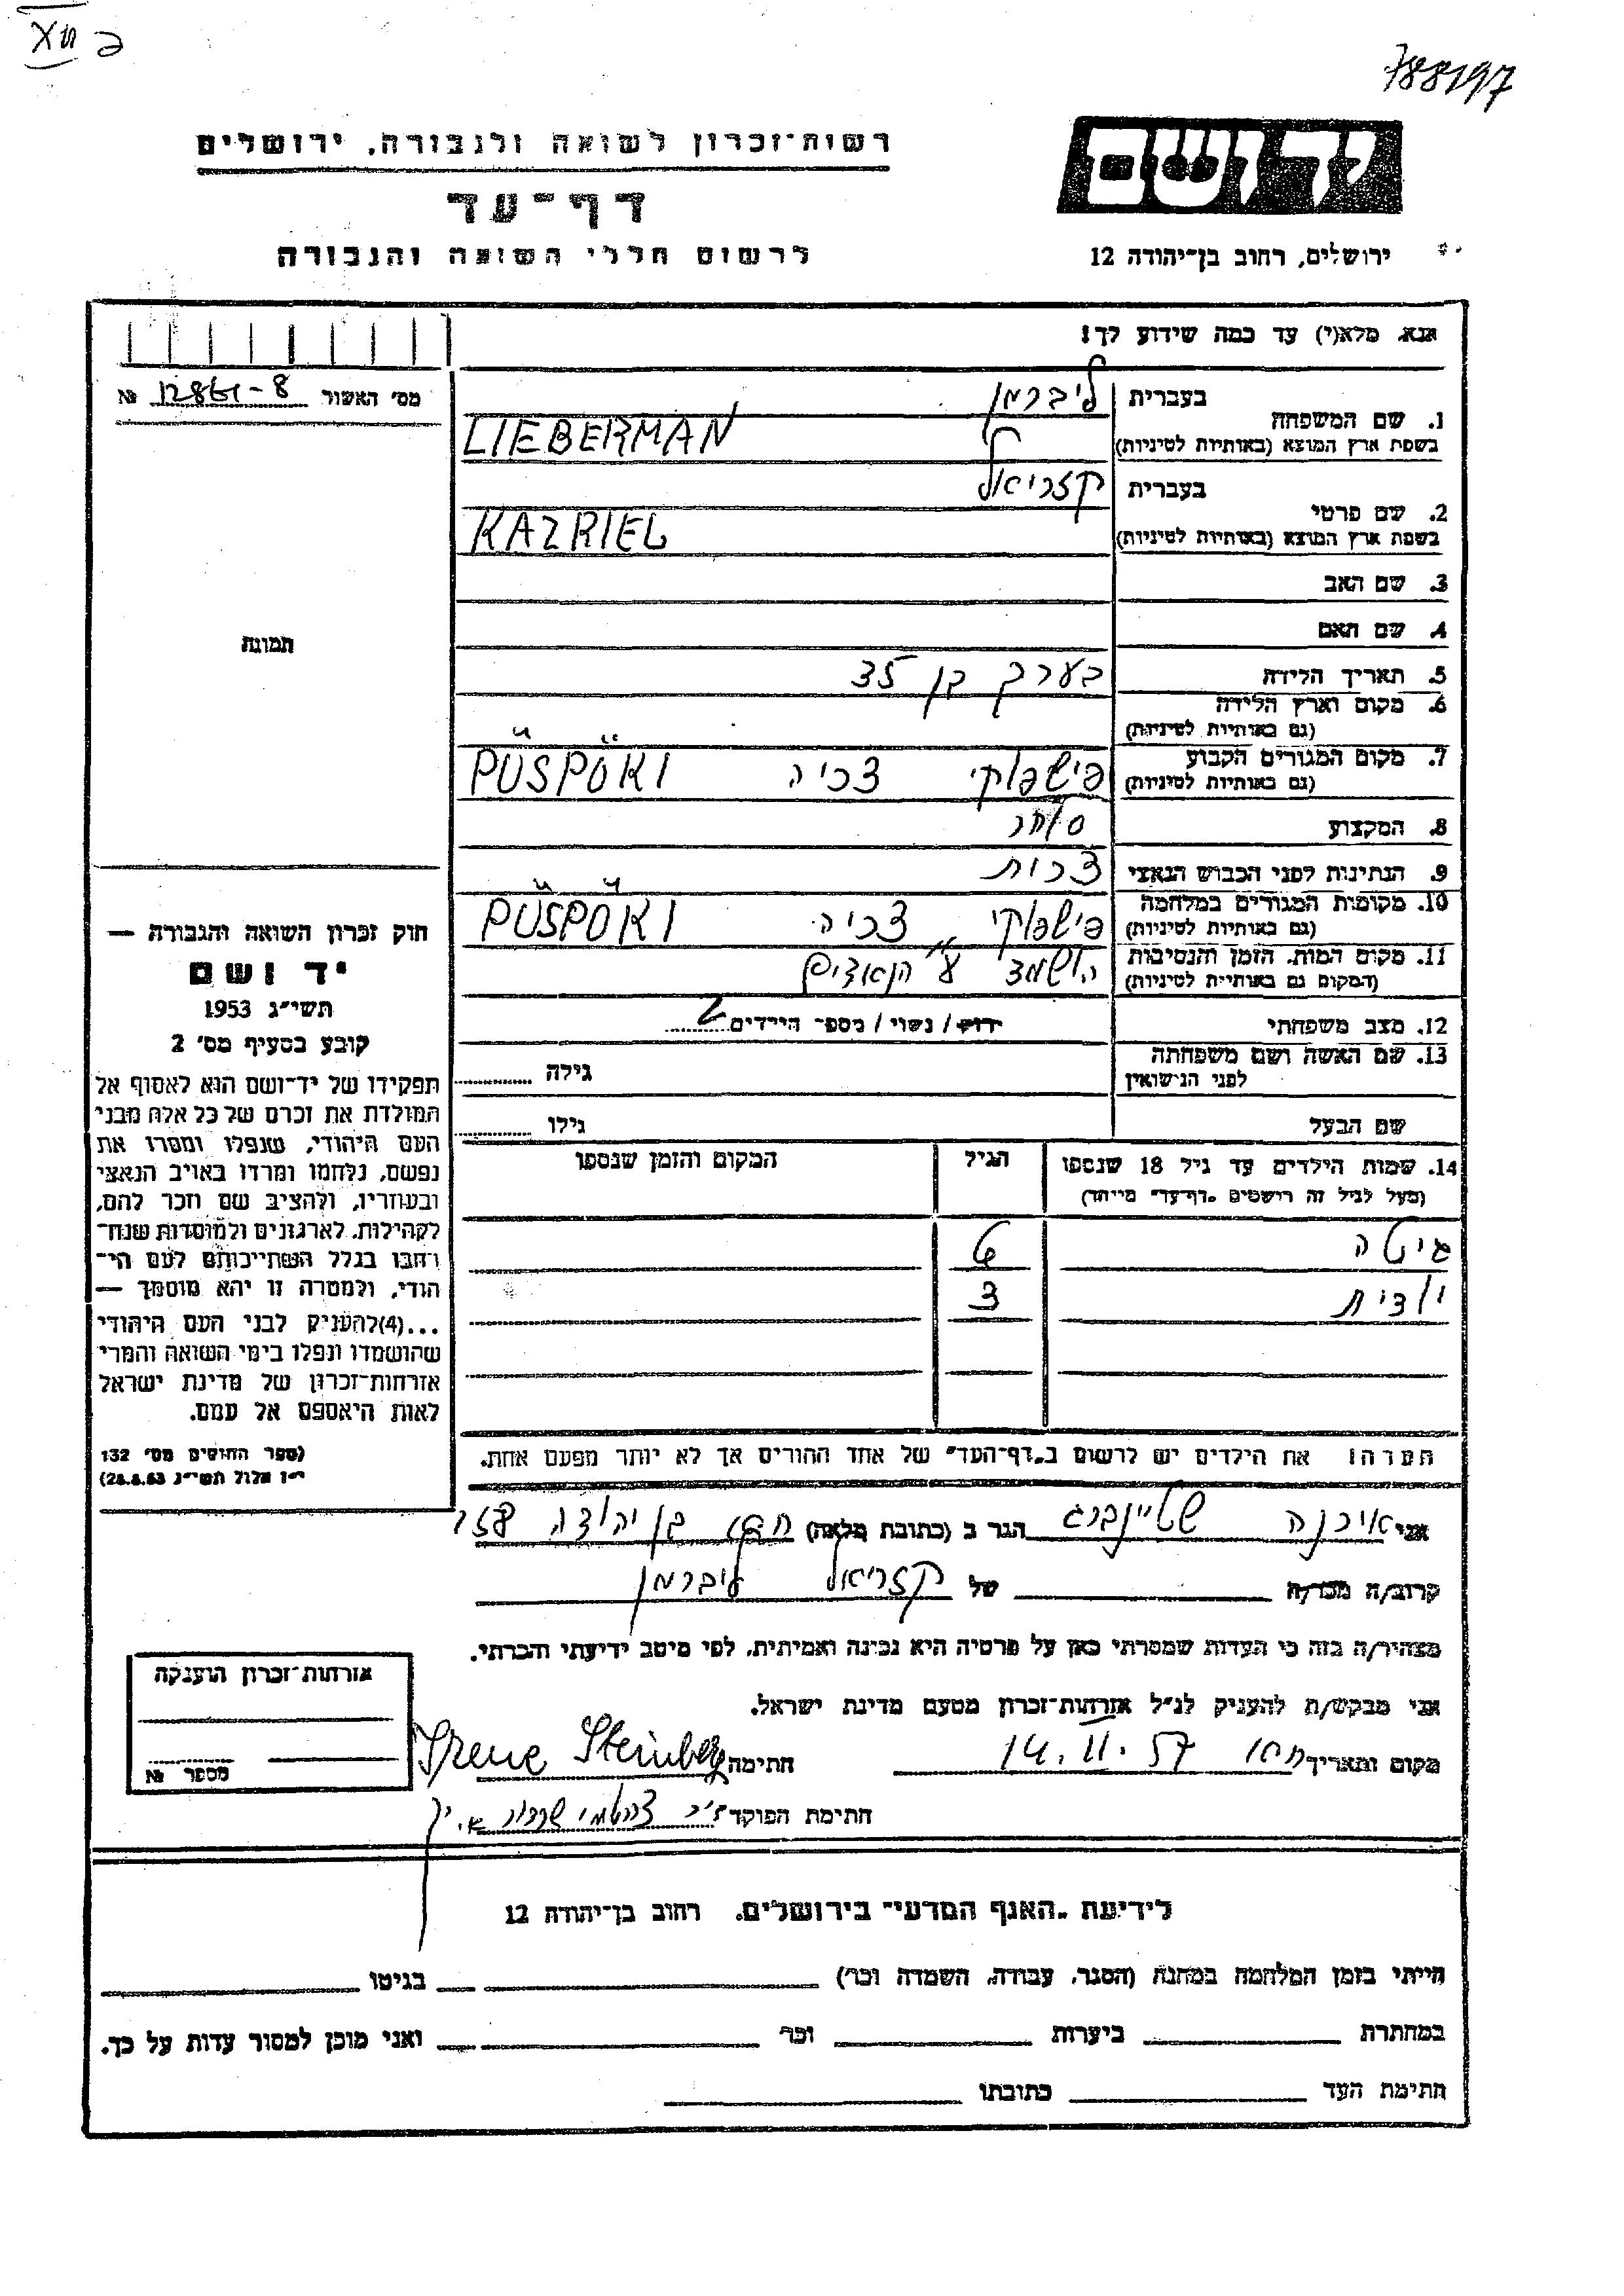 788197
רשות־זכרון לשואה ולגבורה, ירושלים
יד ושם
דף־עד
לרשום חללי השואה והגבורה
ירושלים, רחוב בן־יהודה 12
אנא, מלא(י) עד כמה שידוע לך!
מס' האשור № 12861-8
1. שם המשפחה בעברית ליברמן
בשפת ארץ המוצא (באותיות לטיניות) LIEBERMAN
2. שם פרטי בעברית קזריאל
בשפת ארץ המוצא (באותיות לטיניות) KAZRIEL
3. שם האב
4. שם האם
תמונה
5. תאריך הלידה בערך בן 35
6. מקום וארץ הלידה
(גם באותיות לטיניות)
7. מקום המגורים הקבוע פישפוקי צכיה PÜSPÖKI
(גם באותיות לטיניות)
8. המקצוע סוחר
9. הנתינות לפני הכבוש הנאצי צכית
10. מקומות המגורים במלחמה פישפוקי צכיה PÜSPÖKI
(גם באותיות לטיניות)
11. מקום המות, הזמן והנסיבות הושמד ע"י הנאצים
(המקום גם באותיות לטיניות)
12. מצב משפחתי רווק / נשוי / מספר הילדים 2
13. שם האשה ושם משפחתה גילה
לפני הנישואין
שם הבעל גילו
14. שמות הילדים עד גיל 18 שנספו הגיל המקום והזמן שנספו
(מעל לגיל זה רושמים "דף־עד" מיוחד)
גיטה 6
יודית 3
הערה: את הילדים יש לרשום ב"דף־העד" של אחד ההורים אך לא יותר מפעם אחת.
חוק זכרון השואה והגבורה —
יד ושם
תשי"ג 1953
קובע בסעיף מס' 2
תפקידו של יד־ושם הוא לאסוף אל
המולדת את זכרם של כל אלה מבני
העם היהודי, שנפלו ומסרו את
נפשם, נלחמו ומרדו באויב הנאצי
ובעוזריו, ולהציב שם וזכר להם,
לקהילות, לארגונים ולמוסדות שנח־
רבו בגלל השתייכותם לעם הי־
הודי, ולמטרה זו יהא מוסמך —
...(4) להעניק לבני העם היהודי
שהושמדו ונפלו בימי השואה והמרי
אזרחות־זכרון של מדינת ישראל
לאות היאספם אל עמם.
(ספר החוקים מס' 132
י"ז אלול תשי"ג 28.8.53)
אני אירנה שטיינברג הגר ב (כתובת מלאה) בן יהודה
קרוב/ה מכר/ה של קזריאל ליברמן
מצהיר/ה בזה כי העדות שמסרתי כאן על פרטיה היא נכונה ואמיתית, לפי מיטב ידיעתי והכרתי.
אני מבקש/ת להעניק לנ"ל אזרחות־זכרון מטעם מדינת ישראל.
מקום ותאריך 14.II.57 חתימה Irene Steinberg
חתימת הפוקד
אזרחות־זכרון הוענקה
מספר №
לידיעת "האגף המדעי" בירושלים, רחוב בן־יהודה 12
הייתי בזמן המלחמה במחנה (הסגר, עבודה, השמדה וכו') בגיטו
במחתרת ביערות וכו' ואני מוכן למסור עדות על כך.
חתימת העד כתובתו